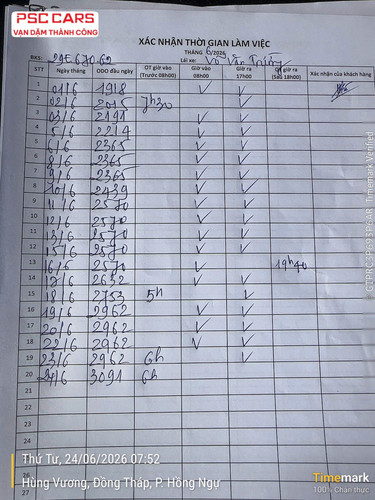 PSC CARS
VẠN DẶM THÀNH CÔNG
XÁC NHẬN THỜI GIAN LÀM VIỆC
THÁNG 6/2026
BKS: 29E 670.62 Lái xe: Võ Văn Trường
STT Ngày tháng ODO đầu ngày QT giờ vào (Trước 08h00) Giờ vào 08h00 Giờ ra 17h00 QT giờ ra (Sau 18h00) Xác nhận của khách hàng
1 01/6 1918 ✓ ✓
2 02/6 2015 7h30 ✓
3 03/6 2191 ✓ ✓
4 5/6 2214 ✓ ✓
5 6/6 2365 ✓ ✓
6 8/6 2365 ✓ ✓
7 9/6 2365 ✓ ✓
8 10/6 2439 ✓ ✓
9 11/6 2570 ✓ ✓
10 12/6 2570 ✓ ✓
11 13/6 2570 ✓ ✓
12 15/6 2570 ✓ ✓
13 16/6 2570 ✓ 19h40
14 17/6 2632 ✓ ✓
15 18/6 2753 5h ✓
16 19/6 2962 ✓ ✓
17 20/6 2962 ✓ ✓
18 22/6 2962 ✓ ✓
19 23/6 2962 6h ✓
20 24/6 3091 6h
21
22
23
24
25
26
27
Thứ Tư, 24/06/2026 07:52
Hùng Vương, Đồng Tháp, P. Hồng Ngự
Timemark
100% Chân thực
Timemark Verified